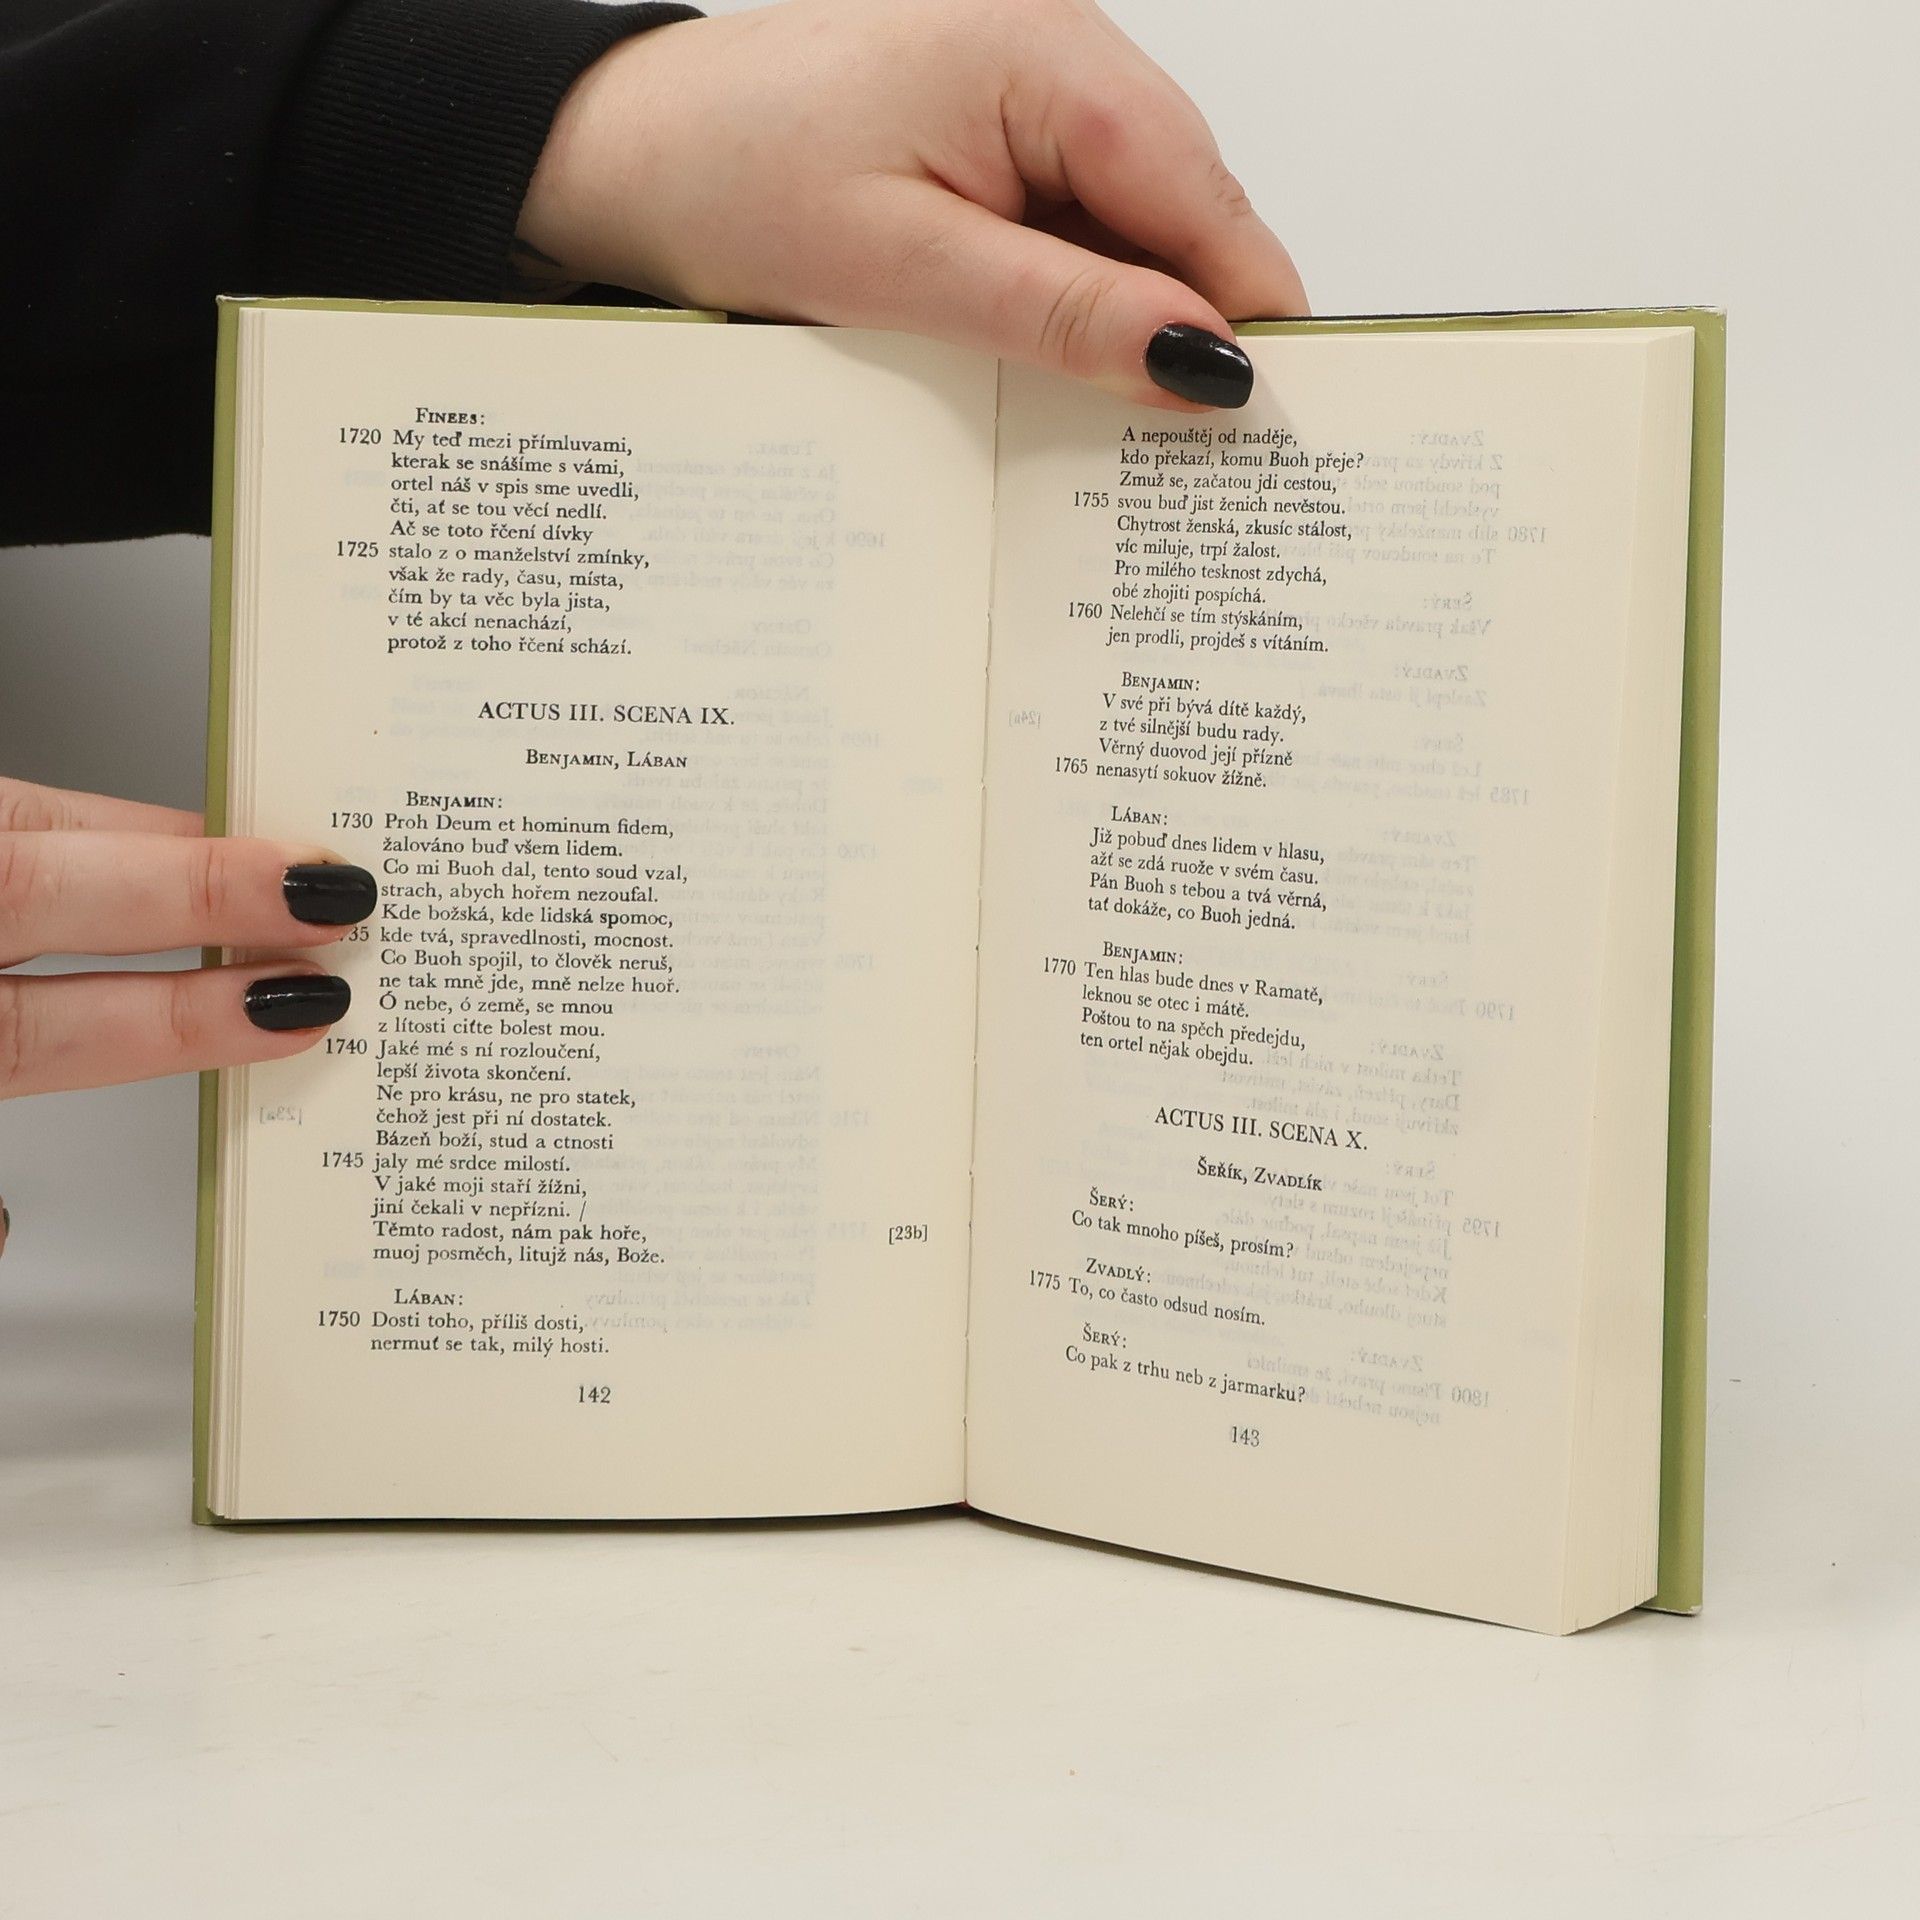 FINEES:
1720 My teď mezi přímluvami,
kterak se snášíme s vámi,
ortel náš v spis sme uvedli,
čti, ať se tou věcí nedlí.
Ač se toto řčení dívky
1725 stalo z o manželství zmínky,
však že rady, času, místa,
čím by ta věc byla jista,
v té akcí nenachází,
protož z toho řčení schází.
ACTUS III. SCENA IX.
BENJAMIN, LÁBAN
BENJAMIN:
1730 Proh Deum et hominum fidem,
žalováno buď všem lidem.
Co mi Buoh dal, tento soud vzal,
strach, abych hořem nezoufal.
Kde božská, kde lidská spomoc,
35 kde tvá, spravedlnosti, mocnost.
Co Buoh spojil, to člověk neruš,
ne tak mně jde, mně nelze huoř.
Ó nebe, ó země, se mnou
z lítosti ciťte bolest mou.
1740 Jaké mé s ní rozloučení,
lepší života skončení.
Ne pro krásu, ne pro statek,
čehož jest při ní dostatek.
Bázeň boží, stud a ctnosti
1745 jaly mé srdce milostí.
V jaké moji staří žížni,
jiní čekali v nepřízni. /
Těmto radost, nám pak hoře, [23b]
muoj posměch, litujž nás, Bože.
LÁBAN:
1750 Dosti toho, příliš dosti,
nermuť se tak, milý hosti.
142
A nepouštěj od naděje,
kdo překazí, komu Buoh přeje?
Zmuž se, začatou jdi cestou,
1755 svou buď jist ženich nevěstou.
Chytrost ženská, zkusíc stálost,
víc miluje, trpí žalost.
Pro milého tesknost zdychá,
obé zhojiti pospíchá.
1760 Nelehčí se tím stýskáním,
jen prodli, projdeš s vítáním.
BENJAMIN:
V své při bývá dítě každý,
z tvé silnější budu rady.
Věrný duovod její přízně
1765 nenasytí sokuov žížně.
LÁBAN:
Již pobuď dnes lidem v hlasu,
ažť se zdá ruože v svém času.
Pán Buoh s tebou a tvá věrná,
tať dokáže, co Buoh jedná.
BENJAMIN:
1770 Ten hlas bude dnes v Ramatě,
leknou se otec i mátě.
Poštou to na spěch předejdu,
ten ortel nějak obejdu.
ACTUS III. SCENA X.
ŠEŘÍK, ZVADLÍK
ŠERÝ:
Co tak mnoho píšeš, prosím?
ZVADLÝ:
1775 To, co často odsud nosím.
ŠERÝ:
Co pak z trhu neb z jarmarku?
143